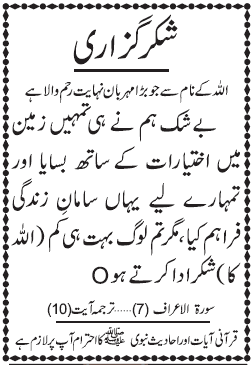 شکر گزاری
اللہ کے نام سے جو بڑا مہربان نہایت رحم والا ہے
بے شک ہم نے ہی تمہیں زمین
میں اختیارات کے ساتھ بسایا اور
تمہارے لیے یہاں سامانِ زندگی
فراہم کیا، مگر تم لوگ بہت ہی کم (اللہ
کا) شکر ادا کرتے ہو O
سورۃ الاعراف (7)......ترجمہ آیت (10)
قرآنی آیات اور احادیث نبوی ﷺ کا احترام آپ پر لازم ہے